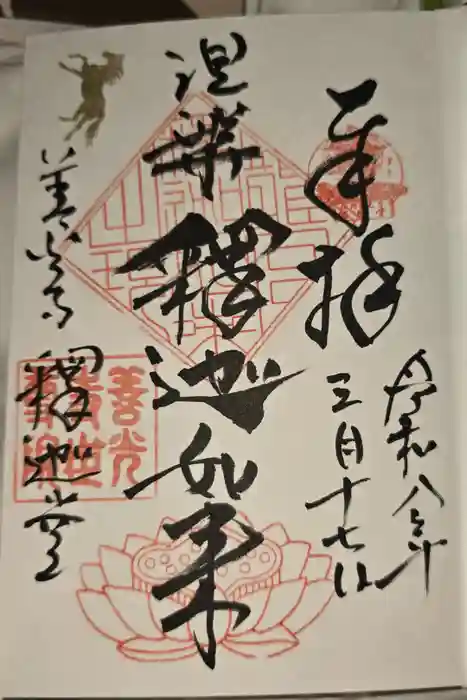 奉拝
令和八年
三月十七日
涅槃釋迦如来
善光寺
釋迦堂